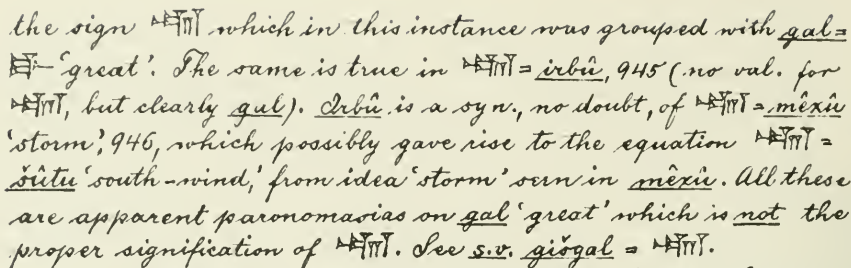 the sign which in this instance was grouped with gal=
𒃲 'great'. The same is true in = irbû, 945 (no val. for
, but clearly gul). Irbû is a syn., no doubt, of = mêxû
'storm', 946, which possibly gave rise to the equation =
šûtu 'south-wind,' from idea 'storm' seen in mêxû. All these
are apparent paronomasias on gal 'great' which is not the
proper signification of . See s.v. gišgal = .